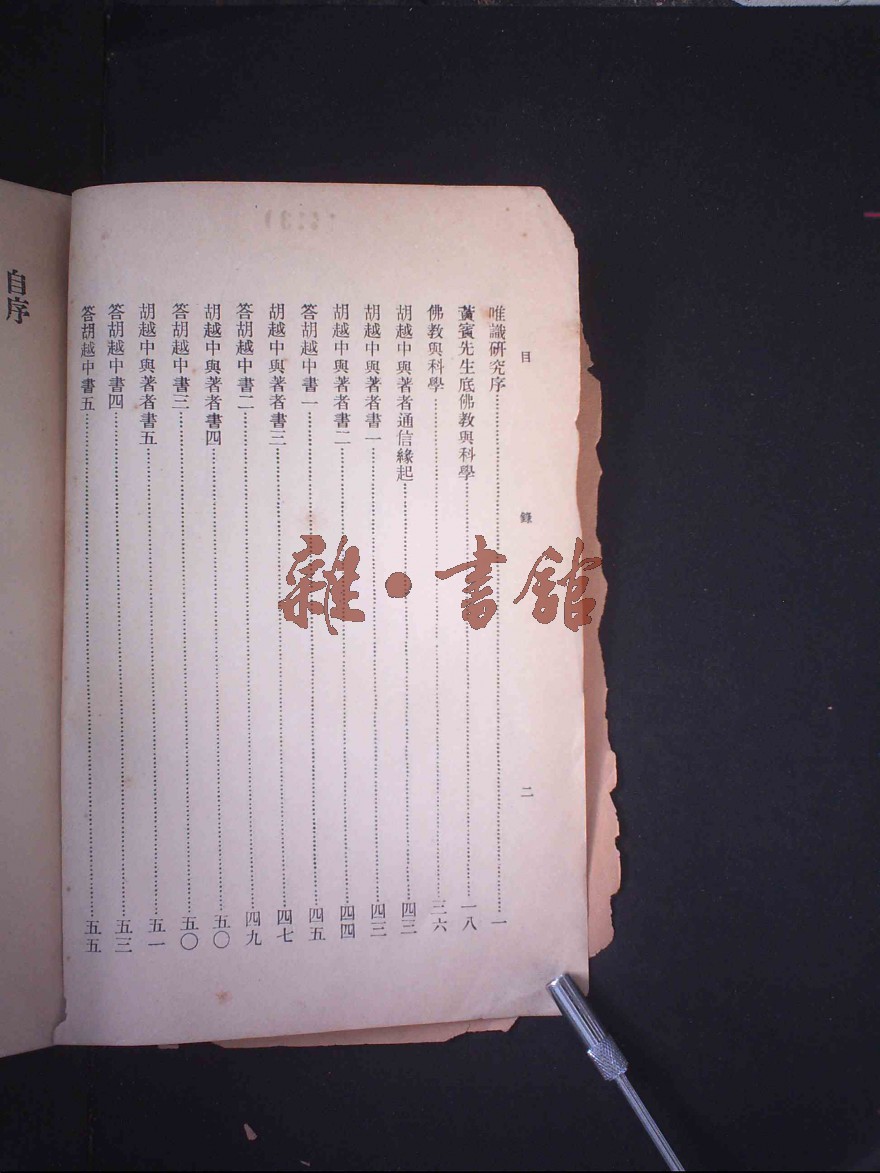 目錄 二
唯識研究序……一
黃賓先生底佛教與科學……一八
佛教與科學……三六
胡越中與著者通信緣起……四三
胡越中與著者書一……四三
胡越中與著者書二……四四
答胡越中書一……四五
胡越中與著者書三……四七
答胡越中書二……四九
胡越中與著者書四……五〇
答胡越中書三……五〇
胡越中與著者書五……五一
答胡越中書四……五三
答胡越中書五……五五
自序
雜·書館